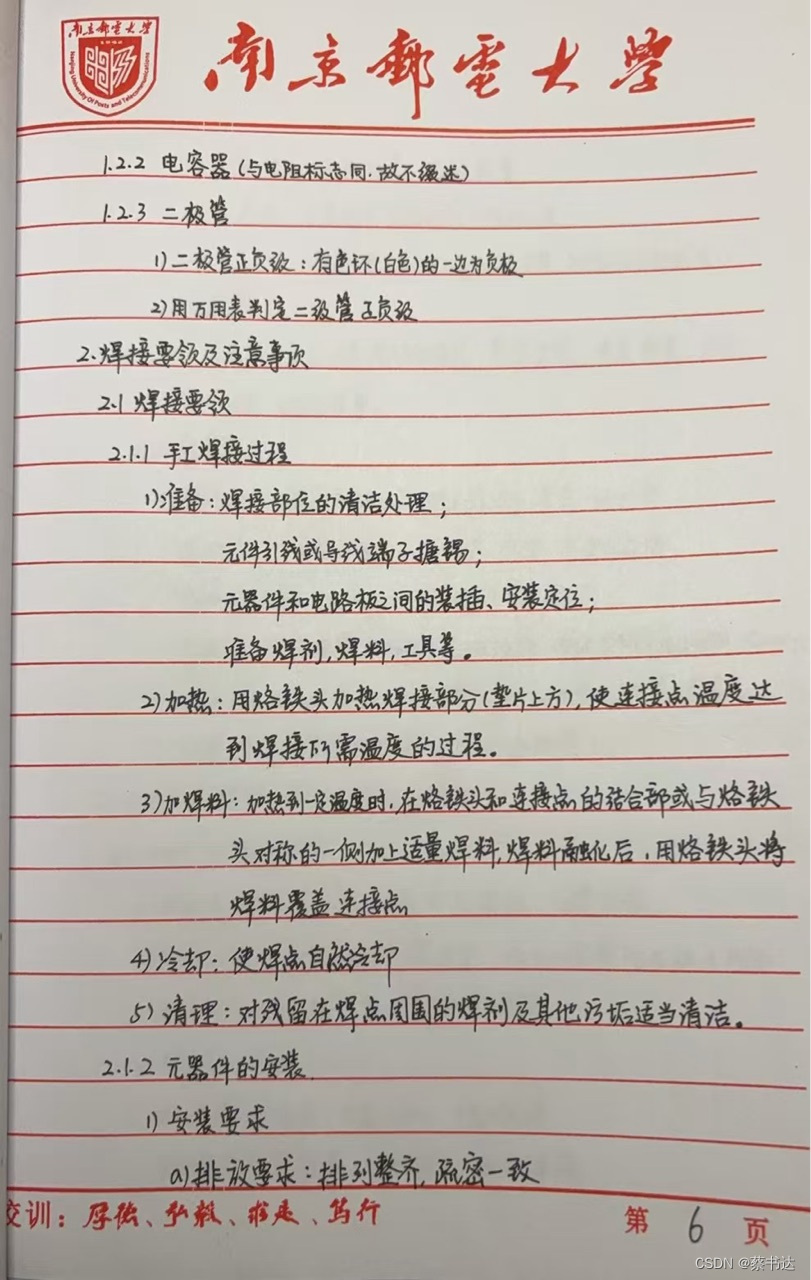 南京邮电大学
1942
Nanjing University Of Posts and Telecommunications
南京郵電大學
1.2.2 电容器(与电阻标志同,故不缀述)
1.2.3 二极管
1)二极管正负极:有色环(白色)的一边为负极
2)用万用表判定二极管正负极
2.焊接要领及注意事项
2.1 焊接要领
2.1.1 手工焊接过程
1)准备:焊接部位的清洁处理;
元件引线或导线端子搪锡;
元器件和电路板之间的装插、安装定位;
准备焊剂,焊料,工具等。
2)加热:用烙铁头加热焊接部分(垫片上方),使连接点温度达
到焊接所需温度的过程。
3)加焊料:加热到一定温度时,在烙铁头和连接点的结合部或与烙铁
头对称的一侧加上适量焊料,焊料融化后,用烙铁头将
焊料覆盖连接点
4)冷却:使焊点自然冷却
5)清理:对残留在焊点周围的焊剂及其他污垢适当清洁。
2.1.2 元器件的安装
1)安装要求
a)排放要求:排列整齐,疏密一致
校训:厚德、弘毅、求是、笃行
第 6 页
CSDN @蔡书达